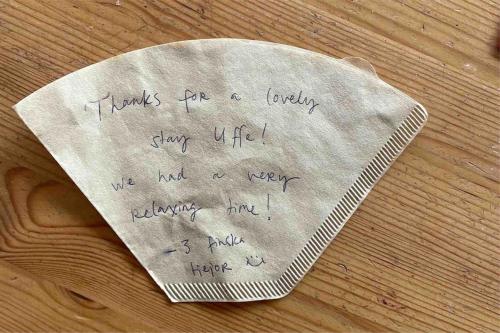 Thanks for a lovely
stay Uffe!
We had a very
relaxing time!
- 3 finska
tjejor :)